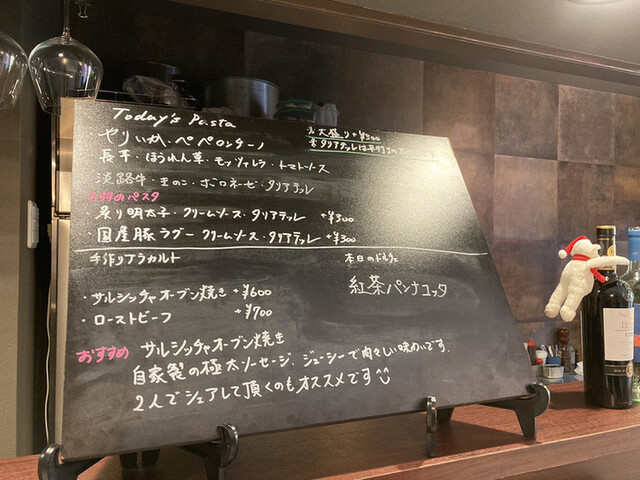 Today's Pasta
・やりいか・ペペロンチーノ
長芋・ほうれん草・モッツァレラ・トマトソース
淡路牛・きのこ・ボロネーゼ・タリアテッレ
おすすめパスタ
・炙り明太子・クリームソース・タリアテッレ +¥300
・国産豚ラグー・クリームソース・タリアテッレ +¥300
※大盛り+¥300
※タリアテッレは平打ち
手作りアラカルト
・サルシッチャオーブン焼き +¥600
・ローストビーフ +¥700
本日のドルチェ
紅茶パンナコッタ
おすすめ サルシッチャオーブン焼き
自家製の極太ソーセージ、ジューシーで肉々しい味わいです。
2人でシェアして頂くのもオススメです